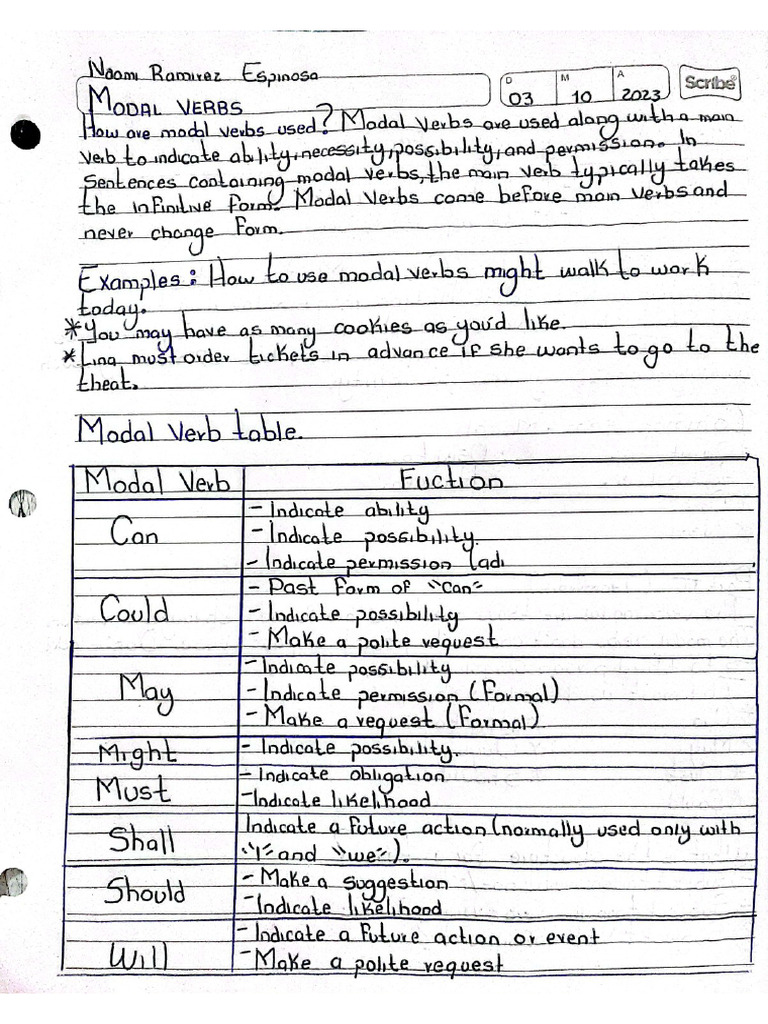 Naomi Ramirez Espinosa
D M A
03 10 2023
Scribe®
MODAL VERBS
How are modal verbs used? Modal Verbs are used along with a main
verb to indicate ability, necessity, possibility, and permission. In
sentences containing modal verbs, the main verb typically takes
the infinitive form. Modal Verbs come before main verbs and
never change form.
Examples: How to use modal verbs might walk to work
today.
*You may have as many cookies as you'd like.
*Tina must order tickets in advance if she wants to go to the
theat.
Modal Verb table.
Modal Verb Fuction
Can
- Indicate ability
- Indicate possibility.
- Indicate permission (adi
Could
- Past form of "can"
- Indicate possibility
- Make a polite request
May
- Indicate possibility
- Indicate permission (Formal)
- Make a request (Formal)
Might - Indicate possibility.
Must
- Indicate obligation
- Indicate likelihood
Shall
Indicate a future action (normally used only with
"I" and "we").
Should
- Make a suggestion
- Indicate likelihood
Will
- Indicate a future action or event
- Make a polite request